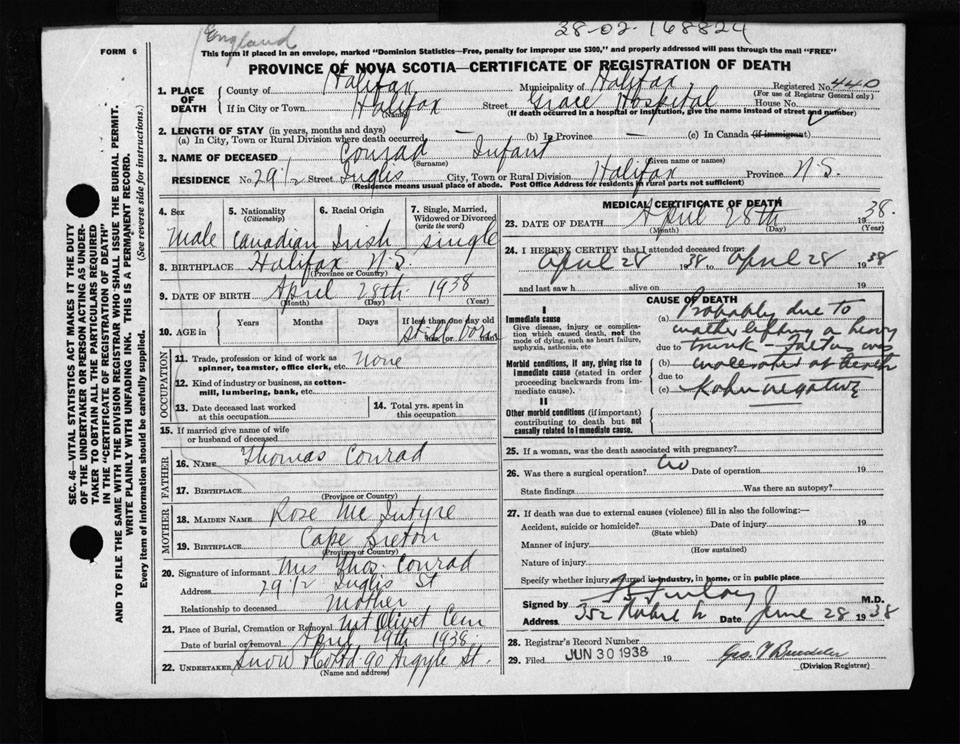 England
38-02-168824
FORM 6
This form if placed in an envelope, marked "Dominion Statistics—Free, penalty for improper use $300," and properly addressed will pass through the mail "FREE"
PROVINCE OF NOVA SCOTIA—CERTIFICATE OF REGISTRATION OF DEATH
1. PLACE OF DEATH { County of Halifax Municipality of Halifax Registered No. 440
(For use of Registrar General only)
If in City or Town Halifax Street Grace Hospital House No.
(Name) (If death occurred in a hospital or institution, give the name instead of street and number)
2. LENGTH OF STAY (in years, months and days)
(a) In City, Town or Rural Division where death occurred — (b) In Province — (c) In Canada (if immigrant)
3. NAME OF DECEASED Conrad Infant
(Surname) (Given name or names)
RESIDENCE No. 29 1/2 Street Inglis City, Town or Rural Division Halifax Province N.S.
(Residence means usual place of abode. Post Office Address for residents in rural parts not sufficient)
4. Sex 5. Nationality (Citizenship) 6. Racial Origin 7. Single, Married, Widowed or Divorced (write the word)
Male Canadian Irish single
8. BIRTHPLACE Halifax N.S.
(Province or Country)
9. DATE OF BIRTH April 28th 1938
(Month) (Day) (Year)
10. AGE in Years Months Days If less than one day old
still born
OCCUPATION
11. Trade, profession or kind of work as spinner, teamster, office clerk, etc. None
12. Kind of industry or business, as cotton-mill, lumbering, bank, etc.
13. Date deceased last worked at this occupation
14. Total yrs. spent in this occupation
15. If married give name of wife or husband of deceased
FATHER
16. NAME Thomas Conrad
17. BIRTHPLACE
(Province or Country)
MOTHER
18. MAIDEN NAME Rose McIntyre
19. BIRTHPLACE Cape Breton
(Province or Country)
20. Signature of informant Mrs Thos. Conrad
Address 29 1/2 Inglis St
Relationship to deceased Mother
21. Place of Burial, Cremation or Removal Mt Olivet Cem
Date of burial or removal April 29th 1938
22. UNDERTAKER Snow & Co Ltd 90 Argyle St.
(Name and address)
MEDICAL CERTIFICATE OF DEATH
23. DATE OF DEATH April 28th 1938.
(Month) (Day) (Year)
24. I HEREBY CERTIFY that I attended deceased from:
April 28 1938 to April 28 1938
and last saw h alive on 19
CAUSE OF DEATH
I
Immediate cause
Give disease, injury or complication which caused death, not the mode of dying, such as heart failure, asphyxia, asthenia, etc
Morbid conditions, if any, giving rise to immediate cause (stated in order proceeding backwards from immediate cause).
II
Other morbid conditions (if important) contributing to death but not causally related to immediate cause.
(a) Probably due to
mother lifting a heavy
due to trunk - Foetus was
(b) macerated at birth
due to
(c) Kahn negative
25. If a woman, was the death associated with pregnancy?
26. Was there a surgical operation? No Date of operation 19
State findings Was there an autopsy?
27. If death was due to external causes (violence) fill in also the following:—
Accident, suicide or homicide? Date of injury 19
(State which)
Manner of injury
(How sustained)
Nature of injury
Specify whether injury occurred in industry, in home, or in public place
Signed by Finlay M.D.
Address 352 Date June 28 1938
28. Registrar's Record Number
29. Filed JUN 30 1938 19 Geo.
(Division Registrar)
SEC. 46—VITAL STATISTICS ACT MAKES IT THE DUTY
OF THE UNDERTAKER OR PERSON ACTING AS UNDER-
TAKER TO OBTAIN ALL THE PARTICULARS REQUIRED
IN THE "CERTIFICATE OF REGISTRATION OF DEATH"
AND TO FILE THE SAME WITH THE DIVISION REGISTRAR WHO SHALL ISSUE THE BURIAL PERMIT.
WRITE PLAINLY WITH UNFADING INK. THIS IS A PERMANENT RECORD.
Every item of information should be carefully supplied. (See reverse side for instructions.)